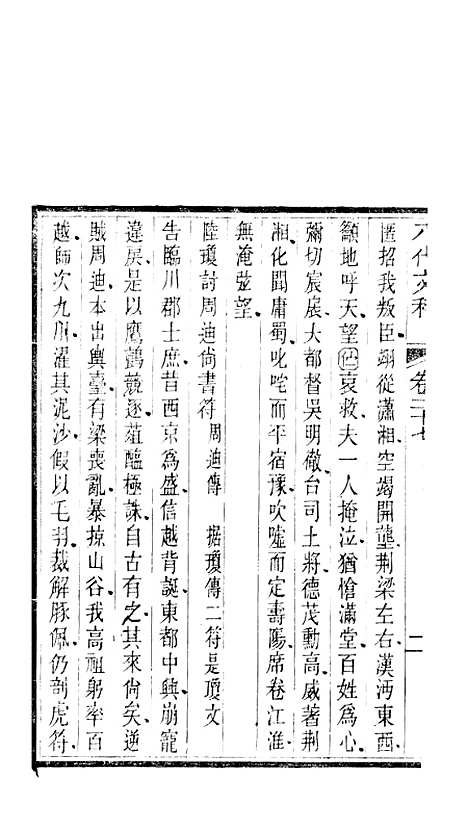 八代文粹 卷三十七 二
匿招我叛臣翊從瀟湘空竭開壟荆梁左右漢沔東西
籲地呼天望哀救夫一人掩泣猶愴滿堂百姓爲心
彌切宸扆大都督吳明徹台司上將德茂勳高威著荆
湘化聞庸蜀叱咤而平宿豫吹噓而定壽陽席卷江淮
無淹弦望
陸瓊討周迪尚書符 周迪傳 據瓊傳二符是瓊文
告臨川郡士庶昔西京爲盛信越背誕東都中興崩寵
違戾是以鷹鸇競逐葅醢極誅自古有之其來尚矣逆
賊周迪本出輿臺有梁喪亂暴掠山谷我高祖躬率百
越師次九川濯其泥沙假以毛羽裁解豚佩仍剖虎符